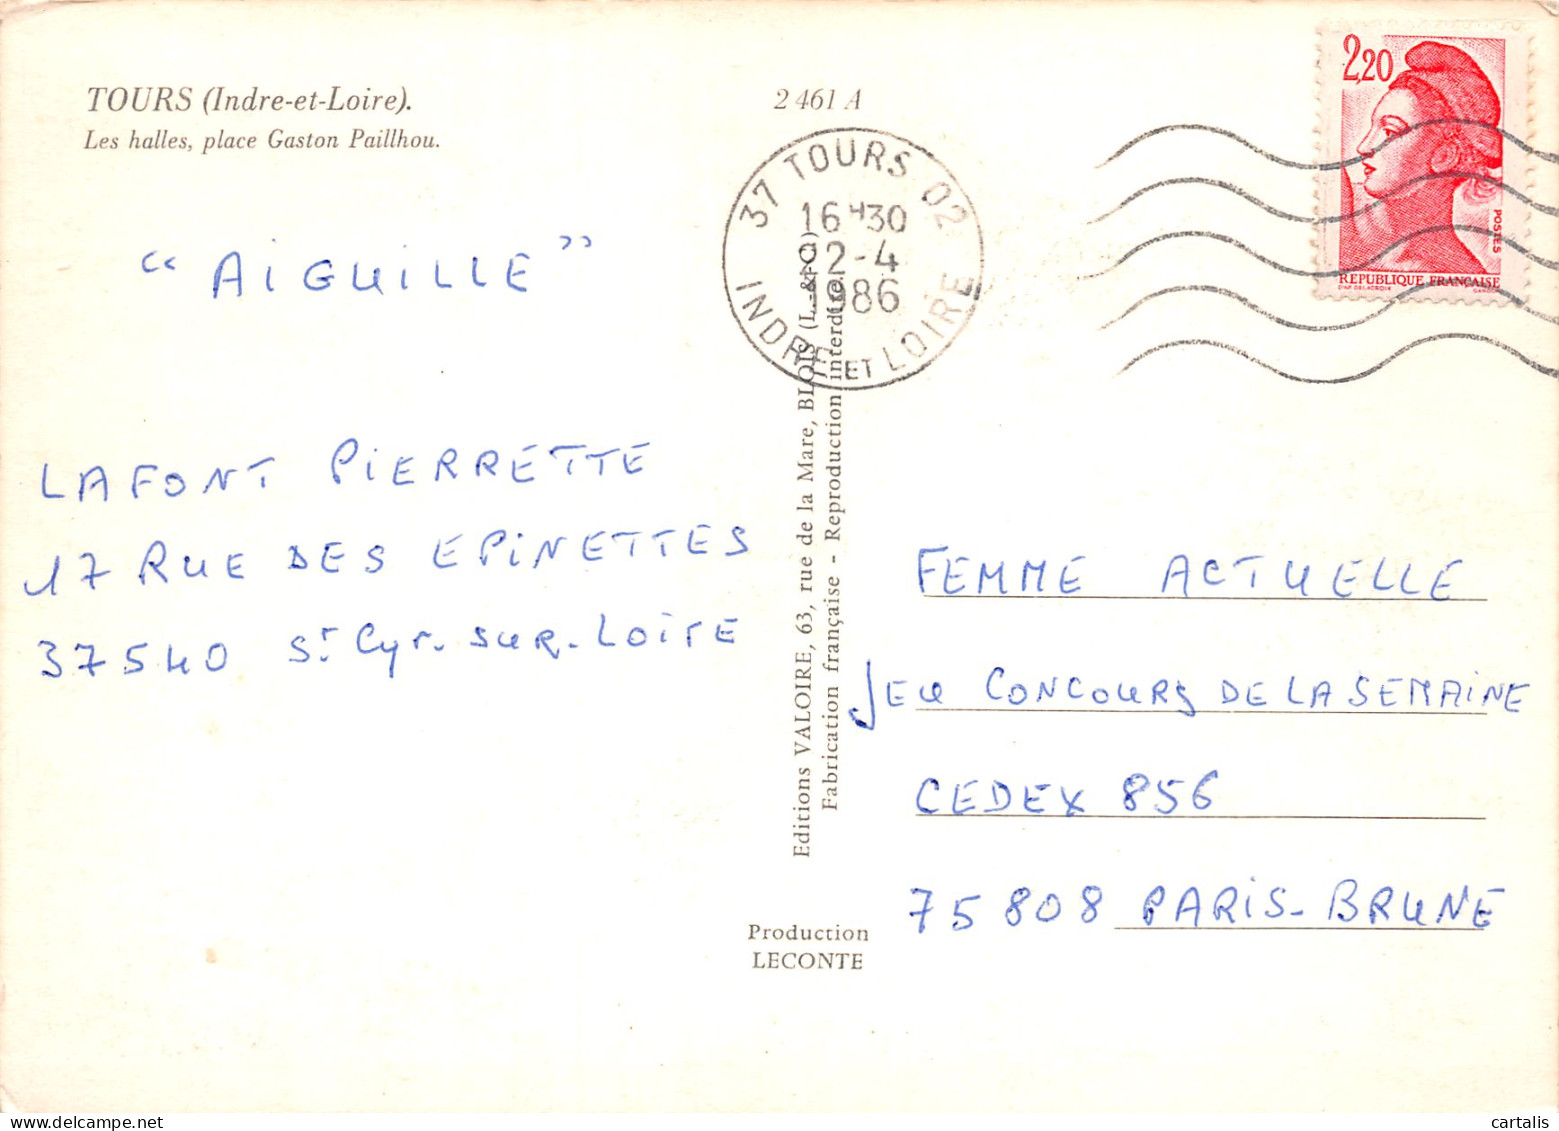 TOURS (Indre-et-Loire).
Les halles, place Gaston Paillhou.
2 461 A
37 TOURS 02
16 H 30
22-4
1986
INDRE ET LOIRE
2,20
POSTES
REPUBLIQUE FRANÇAISE
D'AP. DELACROIX
GANDON
“ AiGUILLE ”
LAFONT PiERRETTE
17 RUE DES EPiNETTES
37540 St. Cyr. SUR. LOiRE
Editions VALOIRE, 63, rue de la Mare, BLOIS (L.-&-C.)
Fabrication française - Reproduction interdite.
FEMME ACTUELLE
JEU CONCOURS DE LA SEMAiNE
CEDEX 856
75808 PARiS-BRUNE
Production
LECONTE
cartalis